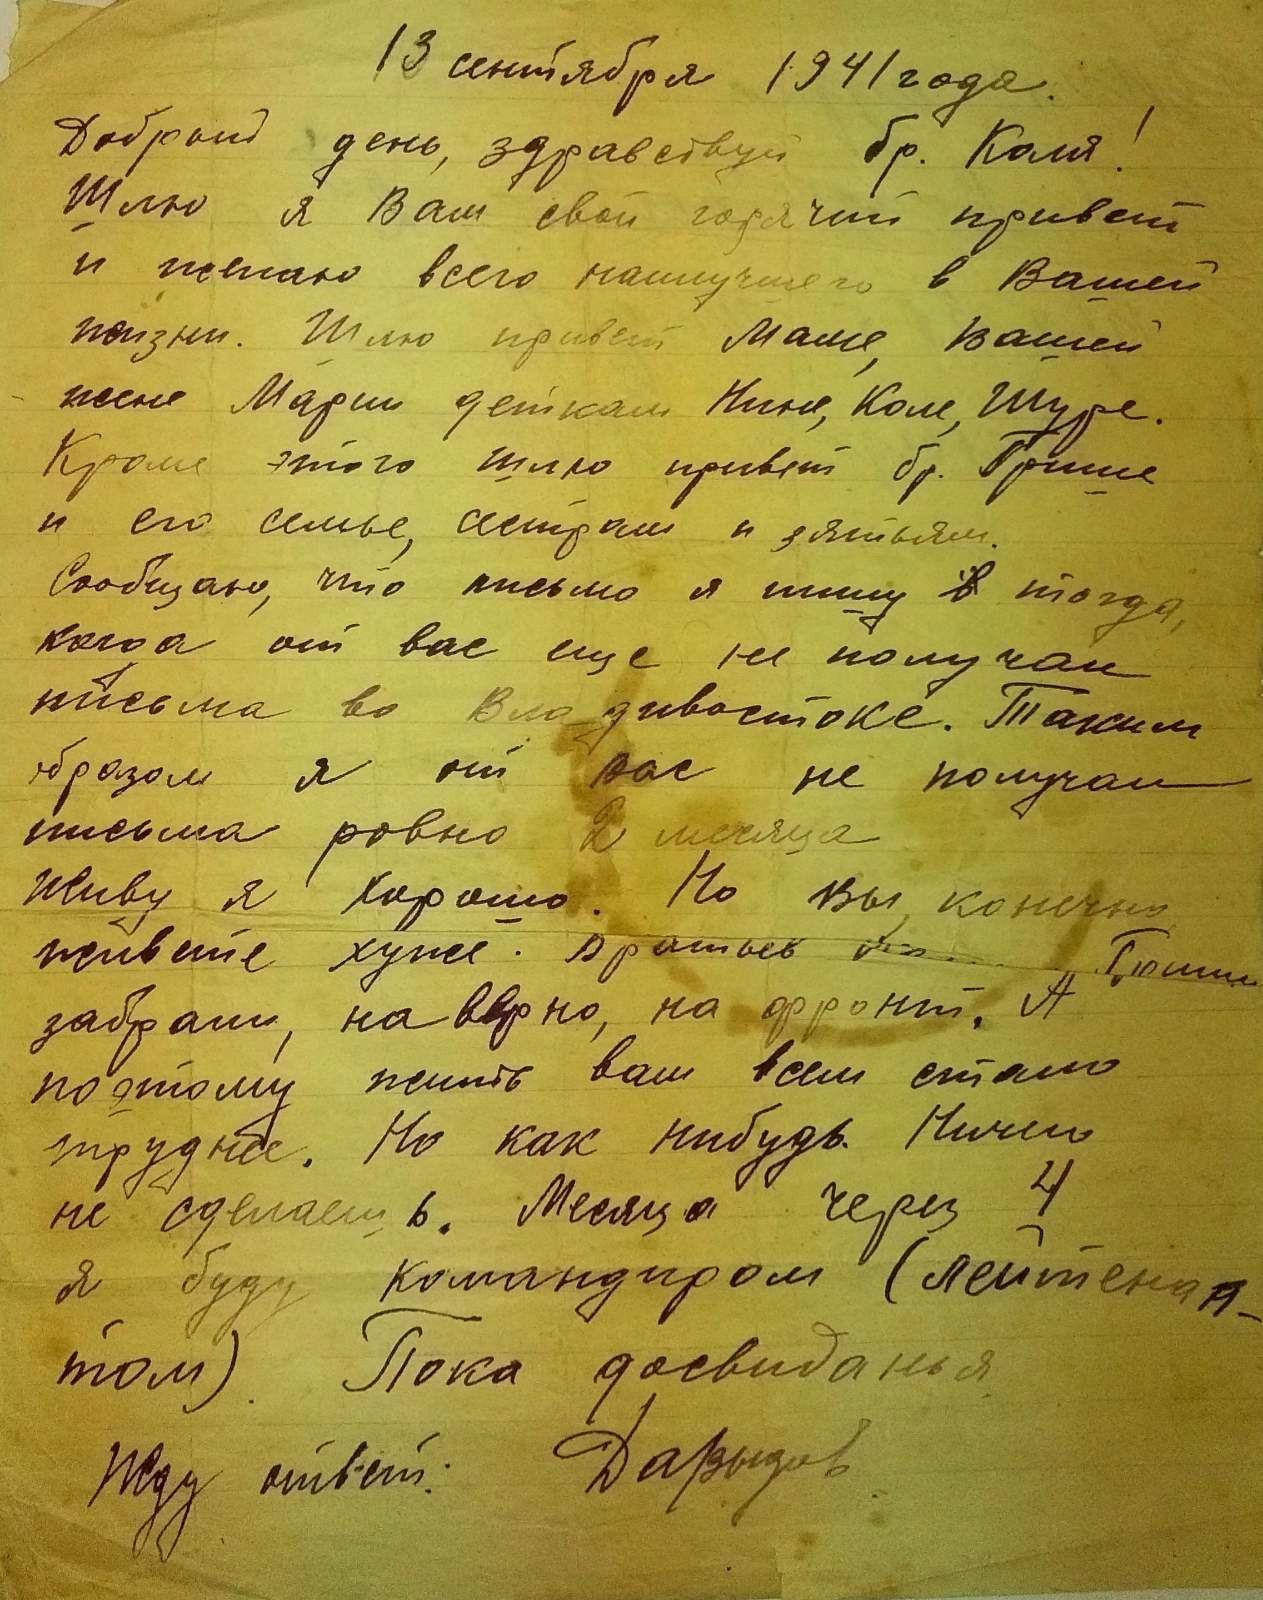 13 сентября 1941 года.
Добрый день, здравствуй бр. Коля!
Шлю я Вам свой горячий привет
и желаю всего наилучшего в Вашей
жизни. Шлю привет Маме, Вашей
жене Марии деткам Нине, Коле, Шуре.
Кроме этого шлю привет бр. Грише
и его семье, сестрам и зятьям.
Сообщаю, что письмо я пишу тогда,
когда от вас еще не получал
письма во Владивостоке. Таким
образом я от вас не получал
письма ровно 2 месяца
Живу я хорошо. Но вы, конечно
живете хуже. Братьев Гриши
забрали, наверно, на фронт. А
поэтому жить вам всем стало
труднее. Но как нибудь. Ничего
не сделаешь. Месяца через 4
я буду командиром (лейтенан-
том). Пока досвиданья
Жду ответ. Давыдов